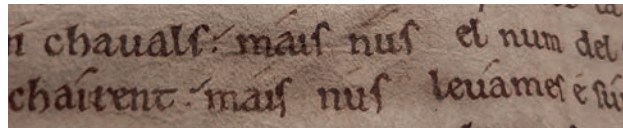 i chauals. mais nus el num del
chairent. mais nus leuames e